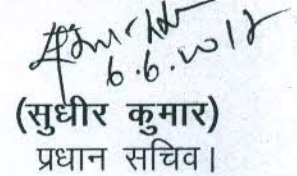 6.6.2012
(सुधीर कुमार)
प्रधान सचिव।